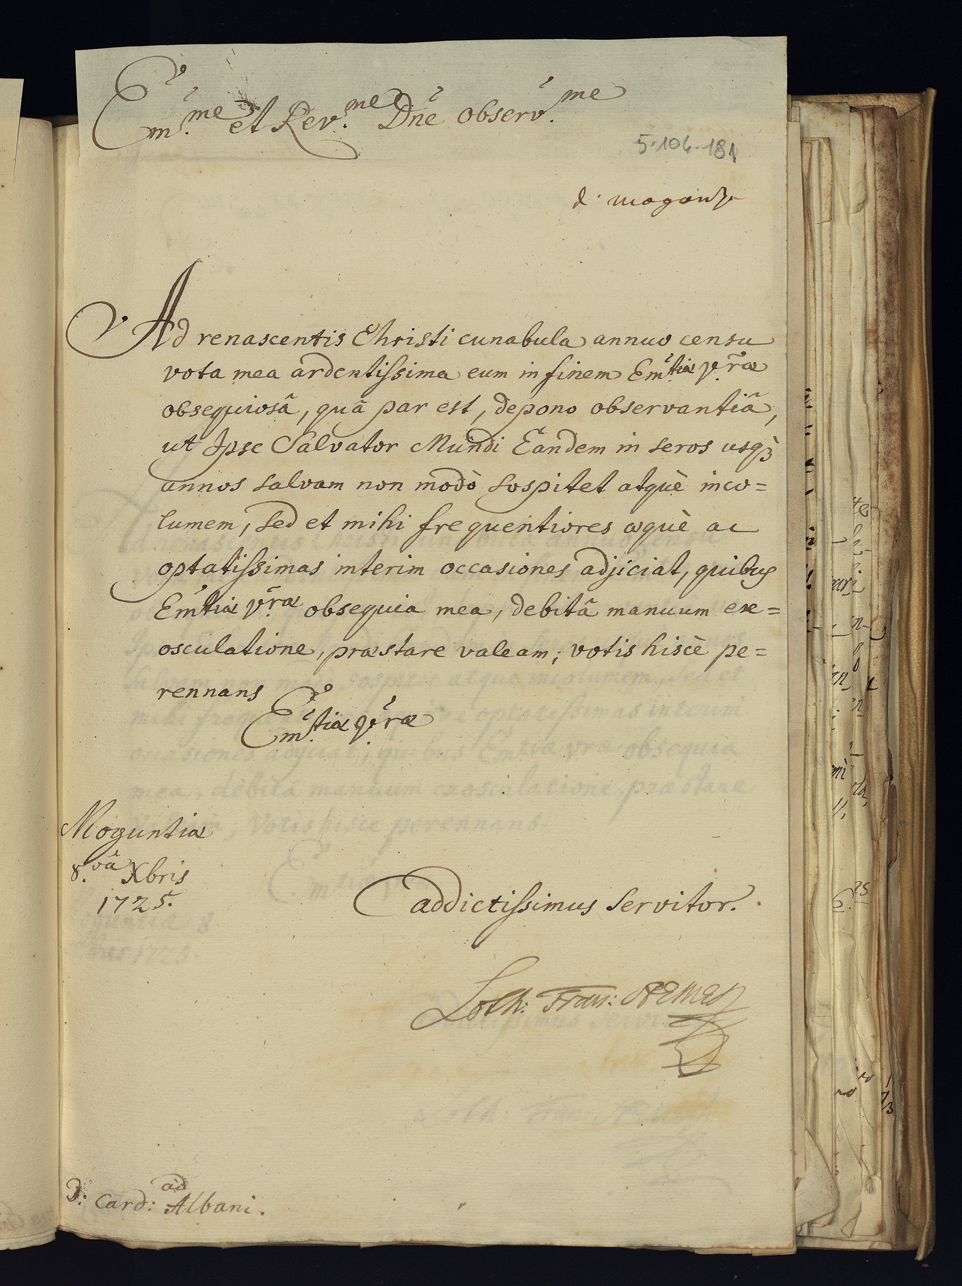 Em.me et Rev.me Dne observ.me
5-106-181
Ad renascentis Christi cunabula annuo censu
vota mea ardentissima eum in finem Emtiæ vræ
obsequiosâ, quâ par est, depono observantiâ,
ut Ipse Salvator Mundi Eandem in seros usq3
annos salvam non modò sospitet atquè inco=
lumem, sed et mihi frequentiores æquè ac
optatissimas interim occasiones adjiciat, quibus
Emtiæ vræ obsequia mea, debitâ manuum ex=
osculatione, præstare valeam; votis hiscè pe=
rennans
Emtiæ vræ
Moguntiæ
8.vâ Xbris
1725.
addictissimus servitor.
Loth: Fran:
D: Card: ad Albani.